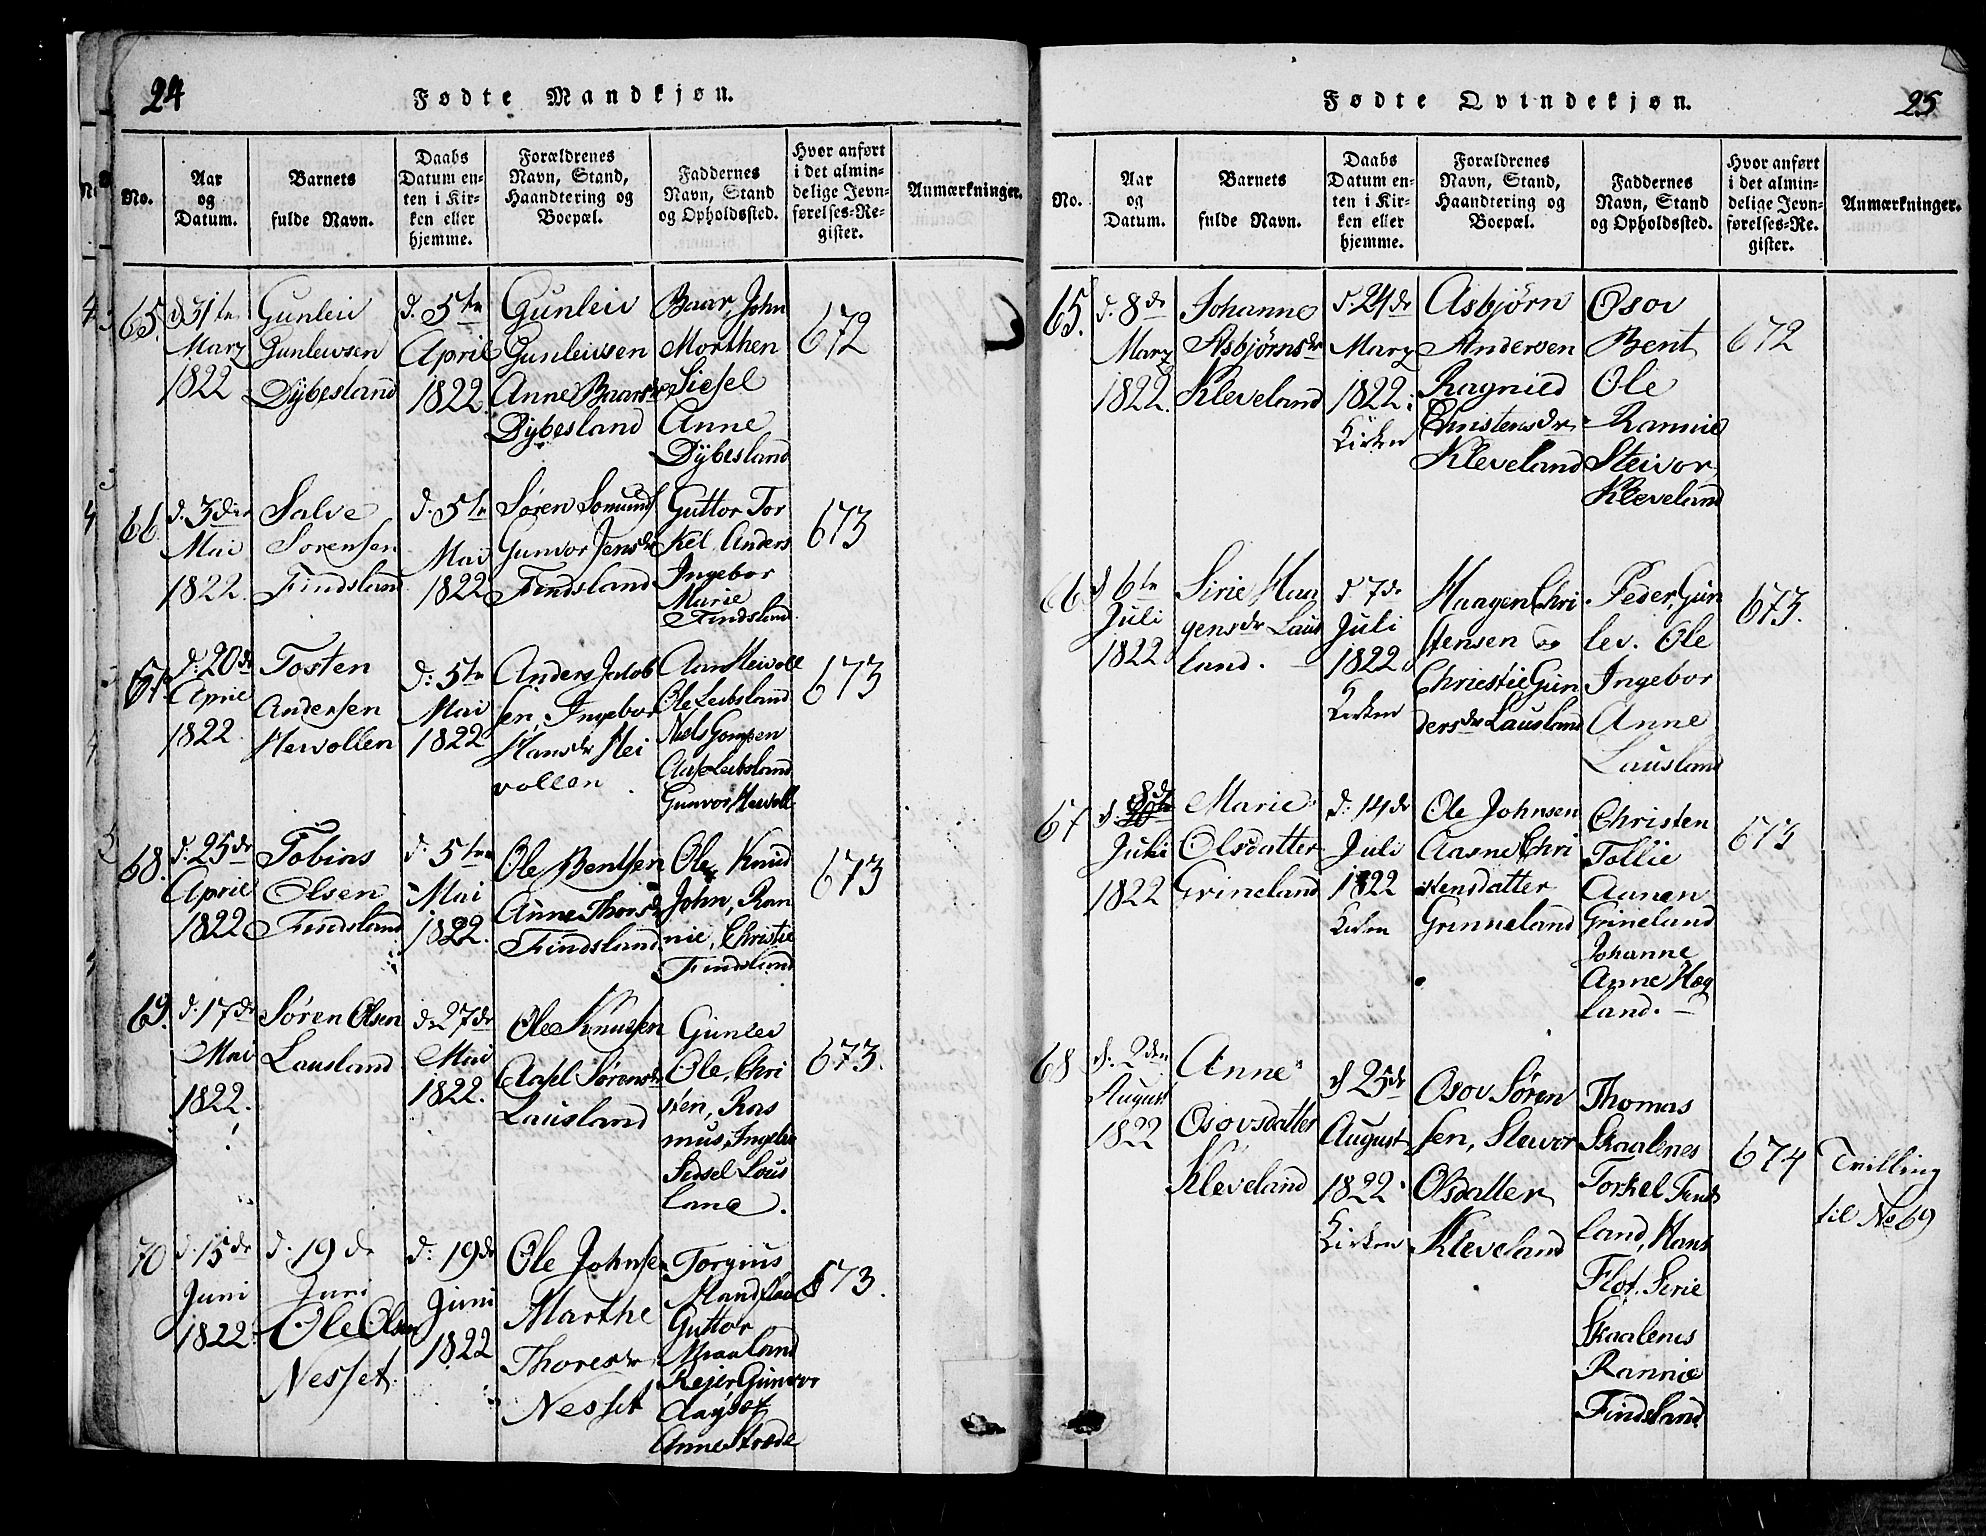 24
Fødte Mandkjøn.
No.
Aar
og
Datum.
Barnets
fulde Navn.
Daabs
Datum en-
ten i Kir-
ken eller
hjemme.
Forældrenes
Navn, Stand,
Haandtering og
Boepæl.
Faddernes
Navn, Stand
og Opholdssted.
Hvor anført
i det almin-
delige Jevn-
førelses-Re-
gister.
Anmærkninger.
65.
d 31te
Marz
1822
Gunleiv
Gunleivsen
Dÿbesland
d. 5te
April
1822.
Gunleiv
Gunleivsen
Anne Baarsdr
Dÿbesland
Baar, John
Morthen
Siesel
Anne
Dÿbesland
672
66
d. 3die
Mai
1822.
Salve
Sørensen
Findsland
d. 5te
Mai
1822
Søren Somunds
Gunvor Jensdr
Findsland
Guttor Tor
kel, Anders
Ingebor
Marie
Findsland
673
67.
d: 20de
April
1822.
Tosten
Andersen
Heivollen
d: 5te
Mai
1822
Anders Jacob
sen, Ingebor
Hansdr Hei
vollen
Aan Heivoll
Ole Leibsland
Niels
Aase Leibsland
Gunvor Heivoll
673
68.
d: 25de
April
1822
Tobias
Olsen
Findsland
d: 5te
Mai
1822.
Ole Bentsen
Anne Thorsdr
Findsland
Ole, Knud
John, Ran
nie, Christie
Findsland
673
69.
d: 17de
Mai
1822.
Søren Olsen
Lausland
d. 27de
Mai
1822.
Ole Knussen
Aasel Sørensdr
Lausland
Gunlev
Ole, Chri
sten, Ras
mus, Ingebor
Sidsel Laus
land.
673.
70
d. 15de
Juni
1822.
d. 19de
Juni
Ole Olsen
Nesset
d: 19de
Juni
1822
Ole Johnsen
Marthe
Thoresdr
Nesset
Torgius
Guttor
Rejer Gunvor
Anne
673.
25
Fødte Qvindekjøn.
No.
Aar
og
Datum.
Barnets
fulde Navn.
Daabs
Datum en-
ten i Kir-
ken eller
hjemme.
Forældrenes
Navn, Stand,
Haandtering og
Boepæl.
Faddernes
Navn, Stand
og Opholdssted.
Hvor anført
i det almin-
delige Jevn-
førelses-Re-
gister.
Anmærkninger.
65.
d. 8de
Marz
1822.
Johanne
Asbjørnsdr
Kleveland
d. 24de
Marz
1822.
Kirken
Asbjørn
Andersen
Ragnied
Christensdr
Kleveland
Osov
Bent
Ole
Rannie
Steivor
Kleveland
672
66
d 6te
Juli
1822
Sirie Haa
gensdr Laus
land.
d 7de
Juli
1822.
Kirken
Haagen Chri
stensen og
Christie Gun
dersdr Lausland
Peder, Gun
lev. Ole
Ingebor
Anne
Lausland
673.
67
d. 8de
Juli
1822
Marie
Olsdatter
Grineland
d: 14de
Juli
1822
Kirken
Ole Johnsen
Aasne Chri
stensdatter
Grinneland
Christen
Tollie
Aanen
Grineland
Johanne
Anne Hæg
land.
673
68
d. 2den
August
1822
Anne
Osovsdatter
Kleveland
d 25de
August
1822.
Kirken
Osov Søren
sen, Steivor
Olsdatter
Kleveland
Thomas
Skaalenes
Torkel Finds
land, Hans
Flot. Sirie
Skaalenes
Rannie
Findsland
674
Tvilling
til No 69